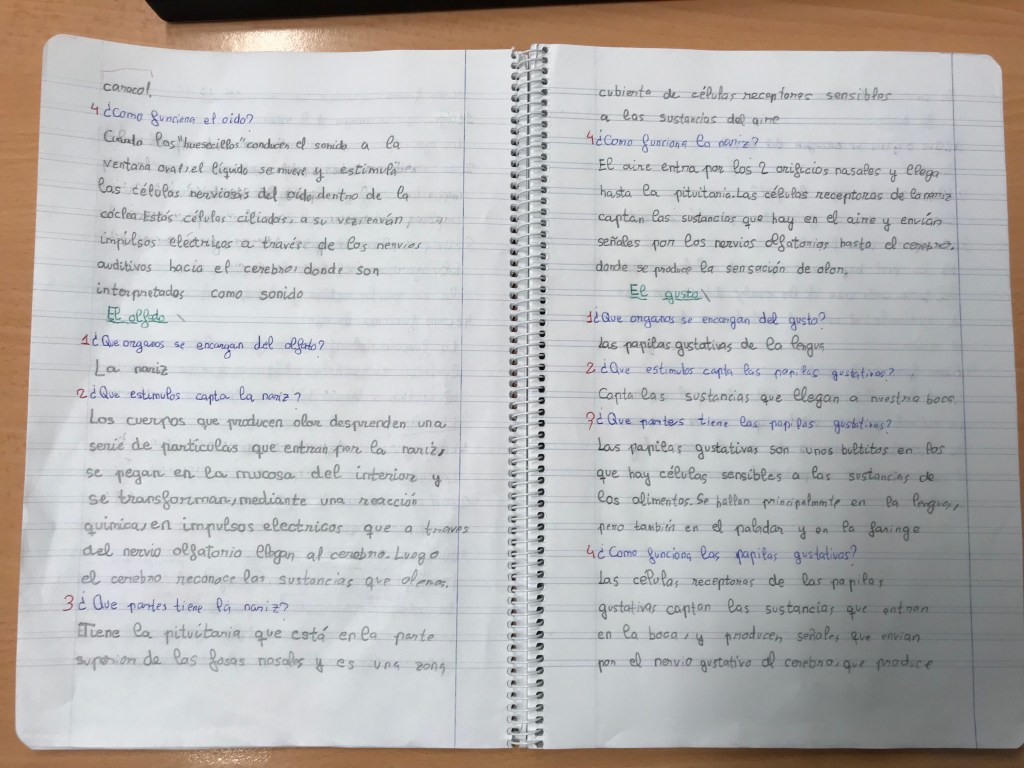 caracol.
4 ¿Como funciona el oido?
Cuando los "huesecillos" conducen el sonido a la
ventana oval, el líquido se mueve y estimula
las células nerviosas del oido, dentro de la
cóclea. Estas células ciliadas, a su vez, envían,
impulsos electricos a través de los nervios
auditivos hacia el cerebro, donde son
interpretados como sonido
El olfato
1 ¿Que organos se encargan del olfato?
La nariz
2 ¿Que estimulos capta la nariz?
Los cuerpos que producen olor desprenden una
serie de partículas que entran por la nariz,
se pegan en la mucosa del interior y
se transforman, mediante una reacción
quimica, en impulsos electricos que a traves
del nervio olfatorio llegan al cerebro. Luego
el cerebro reconoce las sustancias que olemos.
3 ¿Que partes tiene la nariz?
Tiene la pituitaria que está en la parte
superior de las fosas nasales y es una zona
cubierta de células receptores sensibles
a las sustancias del aire
4 ¿Como funciona la nariz?
El aire entra por los 2 orificios nasales y llega
hasta la pituitaria. Las células receptoras de la nariz
captan las sustancias que hay en el aire y envían
señales por los nervios olfatorios hasta el cerebro.
donde se produce la sensación de olor.
El gusto
1 ¿Que organos se encargan del gusto?
Las papilas gustativas de la lengua
2 ¿Que estimulos capta las papilas gustativas?
Capta las sustancias que llegan a nuestra boca
3 ¿Que partes tiene las papilas gustativas?
Las papilas gustativas son unos bultitos en los
que hay células sensibles a las sustancias de
los alimentos. Se hallan principalmnte en la lengua,
pero también en el paladar y en la faringe
4 ¿Como funciona las papilas gustativas?
Las células receptoras de las papilas
gustativas captan las sustancias que entran
en la boca, y producen señales que envian
por el nervio gustativo al cerebro, que produce